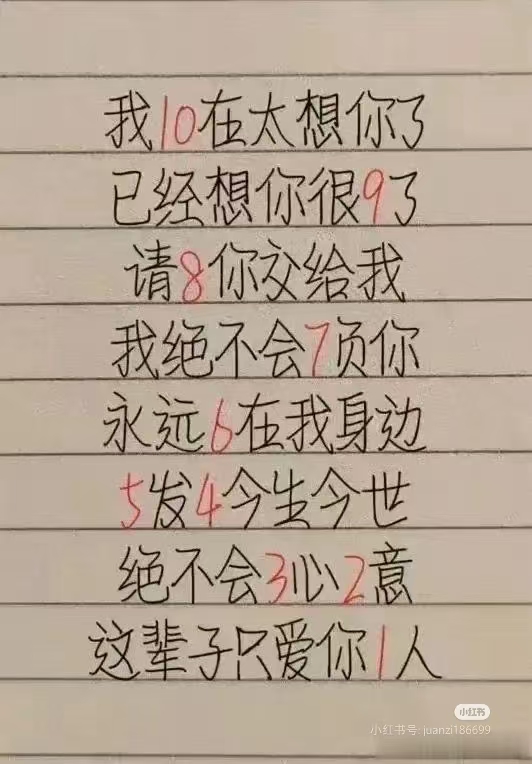 我10在太想你了
已经想你很9了
请8你交给我
我绝不会7负你
永远6在我身边
5发4今生今世
绝不会3心2意
这辈子只爱你1人
小红书
小红书号: juanzi186699